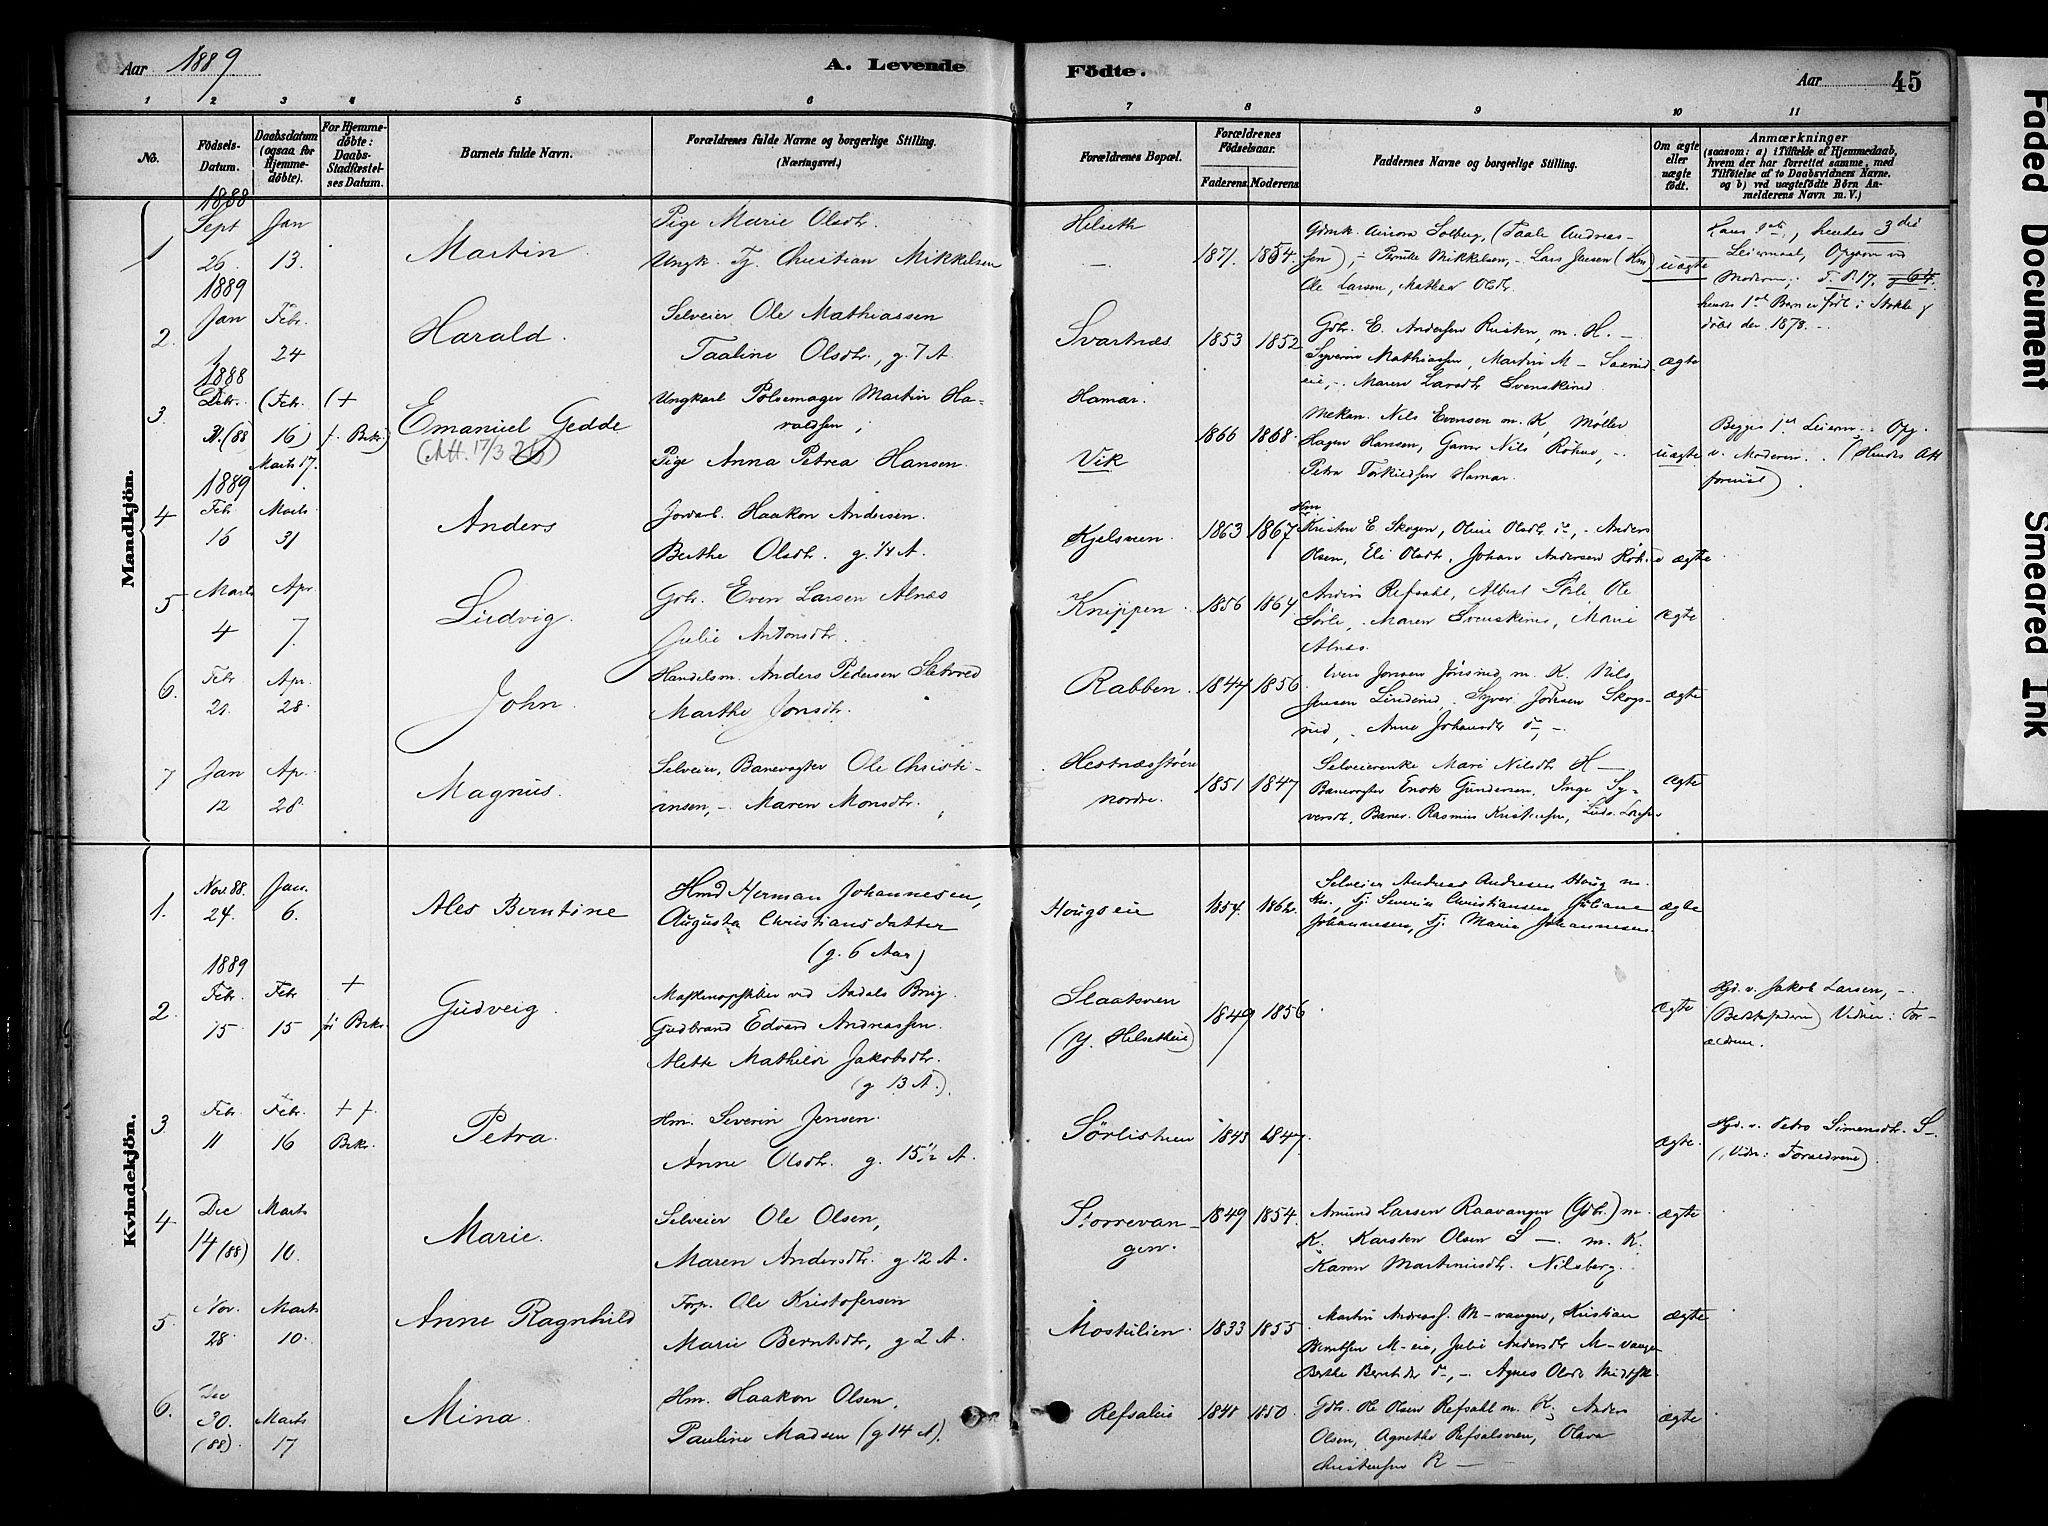 Aar 1889
A. Levende Födte.
Aar 45
1 2 3 4 5 6 7 8 9 10 11
No.
Födsels-Datum.
Daabsdatum (ogsaa for Hjemmedöbte).
For Hjemmedöbte: Daabs-Stadfæstelses Datum.
Barnets fulde Navn.
Forældrenes fulde Navne og borgerlige Stilling.
(Næringsvei.)
Forældrenes Bopæl.
Forældrenes Födselsaar.
Faderens. Moderens.
Faddernes Navne og borgerlige Stilling.
Om ægte eller uægte födt.
Anmærkninger
(saasom: a) i Tilfælde af Hjemmedaab,
hvem der har forrettet samme, med
Tilföielse af to Daabsvidners Navne.
og b) ved uægtefödte Börn Anmelderens Navn m. V.)
Mandkjön.
1 1888 Sept 26 Jan 13. Martin
Pige Marie Olsdtr.
Ungk. Tj. Christian Mikkelsen
Helseth
1871. 1854.
Lars Jensen
Ole Larsen, Mathea Olsdtr.
uægte
2. 1889 Jan Febr. 24 Harald.
Selveier Ole Mathiassen
Taaline Olsdtr., g. 7 A.
Svartnæs 1853 1852
Gdbr. E. Andersen Rusten, m. H. —
Syverin Mathiassen, Martin M —
Maren Larsdtr Svenskerud
ægte
3. 1888 Debr. (88) (Febr. 16) Marts 17. (+ f. Bekr.) Emanuel Gedde
(Att. 17/3 26)
Ungkarl Pölsemager Martin Haraldsen;
Pige Anna Petrea Hansen.
Hamar.
Vik
1866 1868.
Mekan. Nils Evensen m. K, Møller
Hagen Hansen, Garver Nils Röhne, -
Petra Torkildsen Hamar.
uægte
Begges 1st Leierm. Opg.
v. Moderen.
4 1889 Febr. 16 Marts 31 Anders
Haakon Andersen.
Berthe Olsdtr. g. 1/4 A.
Kjelsveen 1863 1867
Kristen E. Skogen, Oline Olsdtr do, - Anders
Olsen, Eli Olsdtr, Johan Andersen
ægte
5. Marts 4 Apr. 7. Ludvig.
Gbr. Even Larsen Alnæs
Julie Antonsdtr.
Knippen 1856 1864
Refsahl, Albert Sörli, Ole
Sörli, Maren Svenskerud, Marie
Alnæs.
ægte
6. Febr 21 Apr. 28. John.
Handelsm. Anders Pedersen
Marthe Jonsdtr.
Rabben. 1844 1856
Iver Jonsen m. K. Nils
Jensen Linderud, Syver Jonsen
Anne Johansdtr do, -
ægte
7 Jan 12 Apr. 28 Magnus.
Selveier, Banevogter Ole Christiansen, - Maren Monsdtr.
Hestnæsstøen
nordre.
1851 1847
Selveierenke Mari Nilsdtr H —
Banevogter Enok Gundersen, Inge Syversdt, Banev. Rasmus Kristensen,
ægte
Kvindekjön.
1. Nov. 88. 24. Jan. 6. Ales Berntine
Hmd Herman Johannesen,
Augusta Christiansdatter
(g. 6 Aar)
Hougseie 1854. 1862.
Selveier Andreas Andresen Houg m.
Kn., Tj. Severin Christiansen, Juliane
Johannesen, Tj. Marie Johannesen.
ægte
2. 1889 Febr. 15 Febr 15 + Bekr. Gudveig
ved Aadals Brug
Gudbrand Edvard Andreassen.
Alette Mathilde Jakobsdtr.
(g. 13 A.)
Slaatsveen
(y. Helsetheie)
1849 1856
ægte
Hjd. v. Jakob Larsen, -
(Bedstefaderen) Vidner: Forældrene.
3. Febr 11 Febr. 16 + Bekr. Petra.
Hm. Severin Jensen.
Anne Olsdtr. g. 15 1/2 A.
1843 1847.
ægte.
Hjd. v. Pedro Simensdtr. S—
(Vidn: Forældrene).
4 Dec 14 (88) Marts 10. Marie.
Selveier Ole Olsen,
Maren Andersdtr. g. 12 A.
Storrevangen.
1849 1854.
Amund Larsen Raavangen (Gdbr.) m.
K. Karsten Olsen S —. m. K.
Karen Martinusdtr. Nilsberg.
ægte
5. Nov. 28. Marts 10. Anne Ragnhild
Forp. Ole Kristofersen
Marie Berntsdtr., g 2 A.
Mostulien. 1833 1855
Martin Andreas. M-vangen, Kristian
Berntsen M-eie, Julie Andersdtr M-vangen
Berthe Berntsdtr do, -. Agnes Olsdtr
ægte
6. Dec 30. (88). Marts 17 Mina.
Hm. Haakon Olsen,
Pauline Madsen (g 14 A).
Refsaleie 1848 1850.
Gdbr. Ole Olsen Refsahl m. K., Anders
Olsen, Agnethe Refsalsveen, Olava
Christensen R —
ægte
Faded Document Smeared Ink